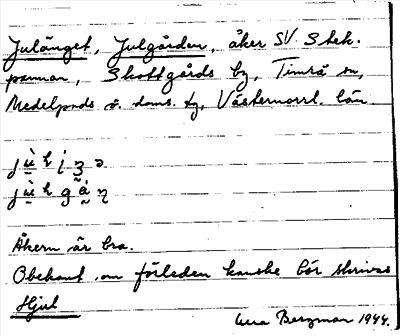 Julänget, Julgården, åker SV Stek-
pannan, Skottgårds by, Timrå sn,
Medelpads ö. doms. tg, Västernorrl. län

Åkern är bra.
Obekant om förleden kanske bör skrivas
Hjul
Bergman 1944.